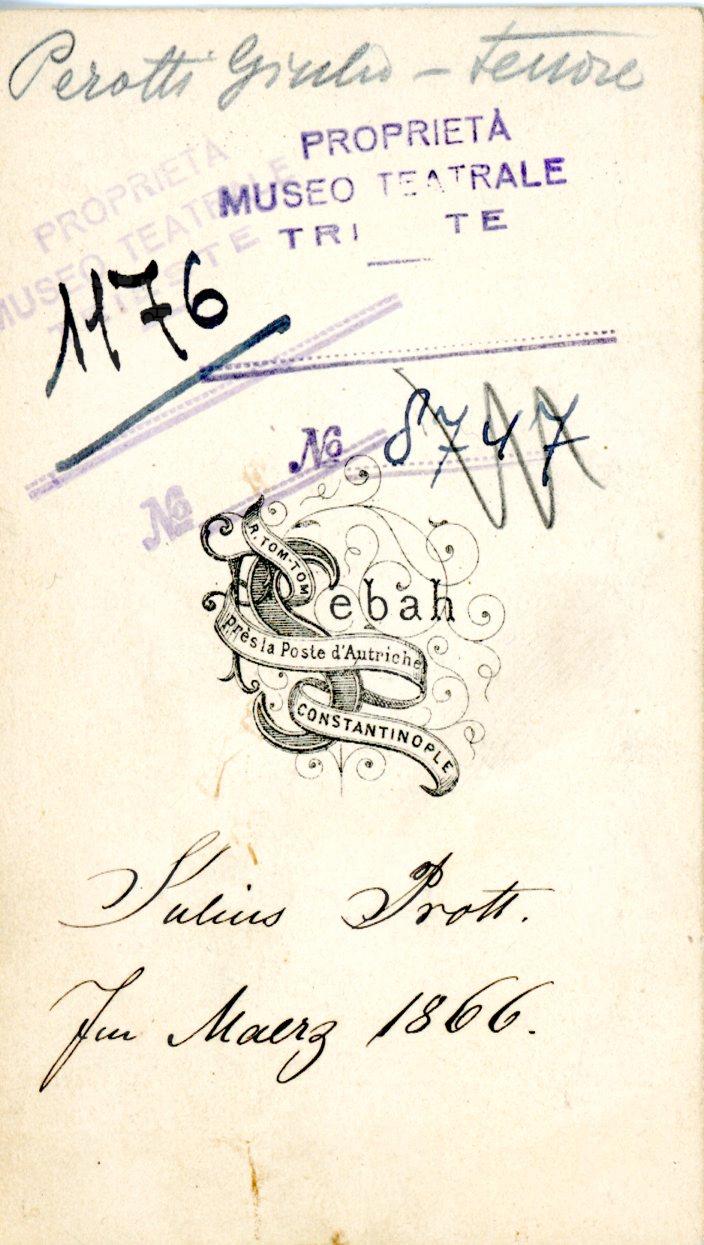 Perotti Giulio – tenore
PROPRIETÀ
MUSEO TEATRALE
TRI TE
PROPRIETÀ
MUSEO TEATRALE
TRIESTE
1176
No 8747
No
R. TOM-TOM
Sebah
près la Poste d'Autriche
CONSTANTINOPLE
Julius Prott.
Im Maerz 1866.